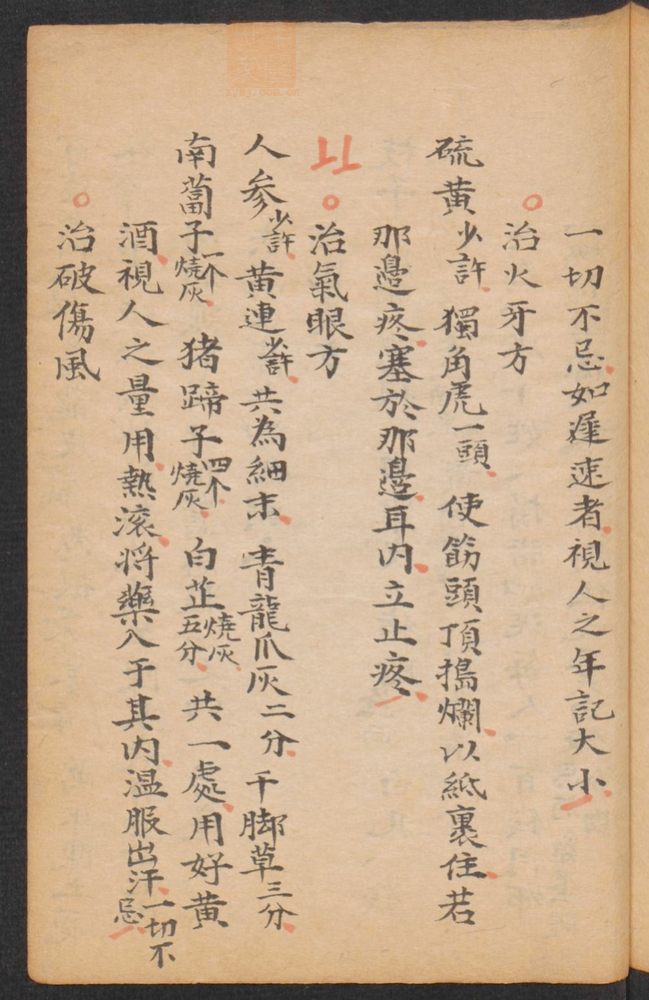 一切不忌如遲速者視人之年記大小
治火牙方
硫黃少許 獨角虎一頭 使筯頭頂搗爛以紙裹住若
那邊疼塞於那邊耳內立止疼
治氣眼方
人參少許 黃連少許 共為細末 青龍爪灰二分 千脚草三分
南蔔子一个燒灰 猪蹄子四个燒灰 白芷五分燒灰 共一處用好黃
酒視人之量用熱滚將藥入于其內温服出汗一切不忌
治破傷風